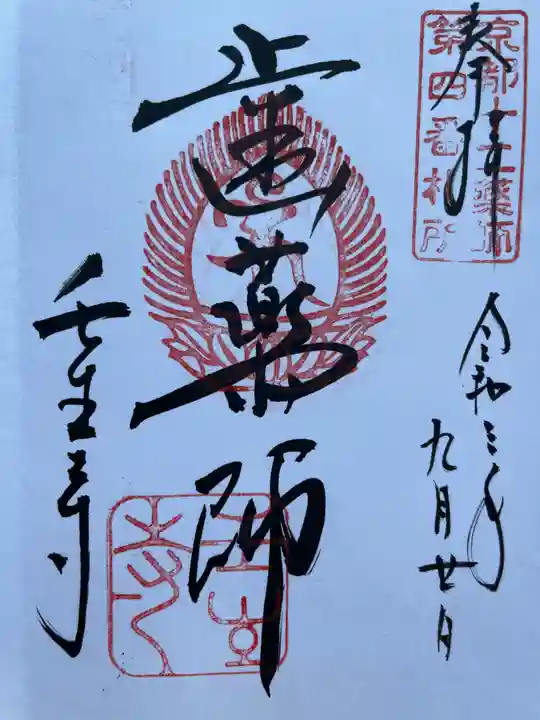 奉拝
京都十二薬師
第四番札所
令和三年
九月廿日
歯薬師
壬生寺